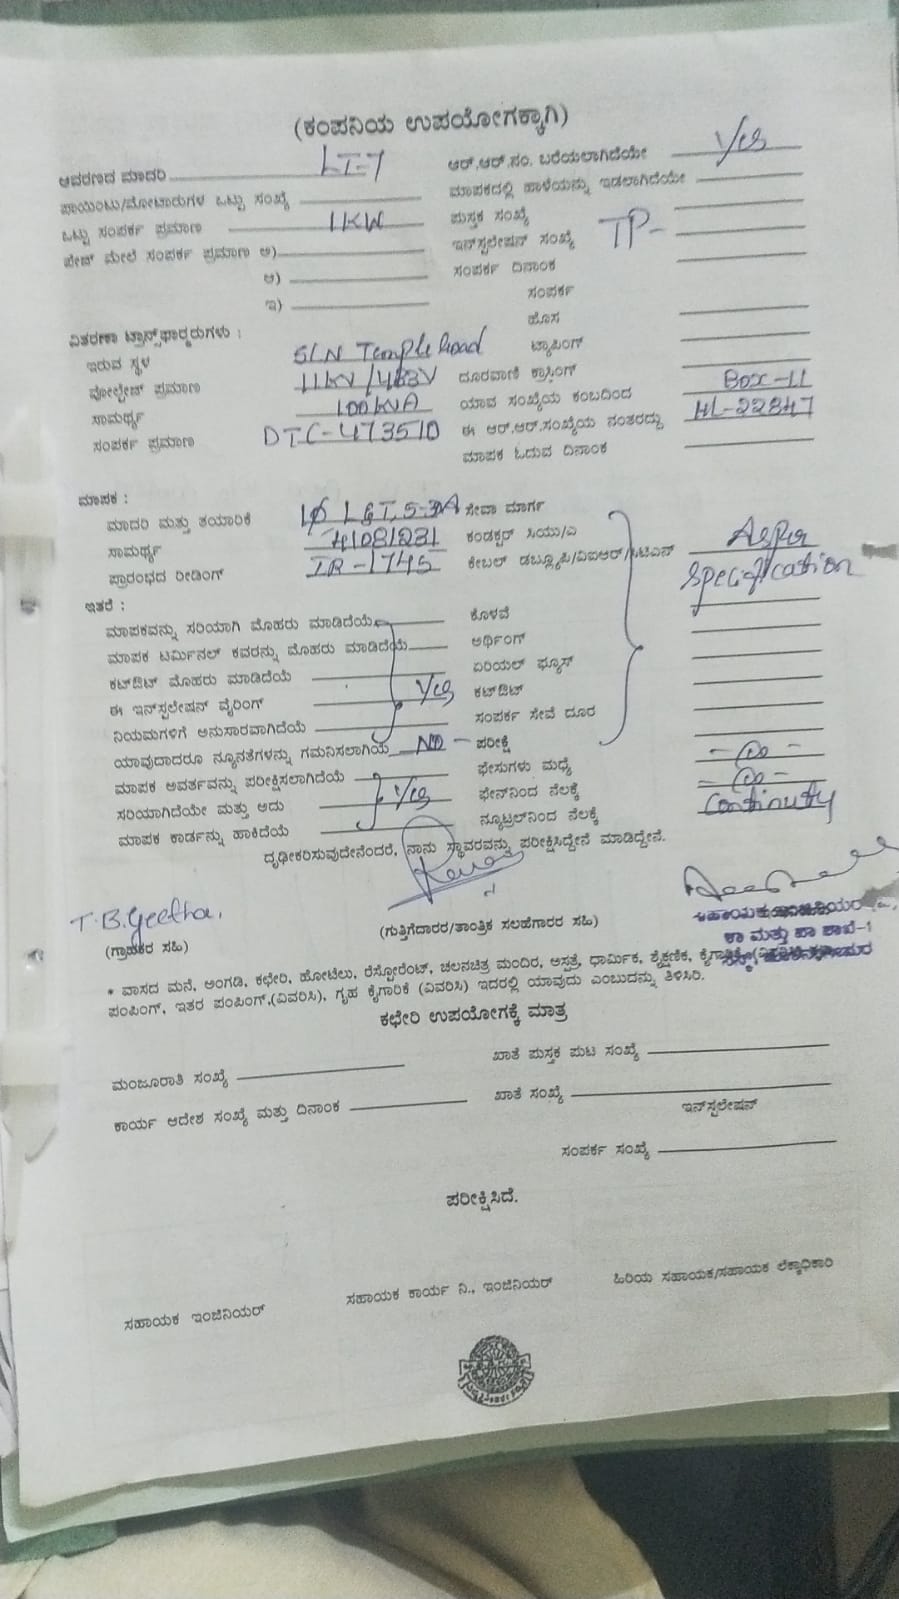 (ಕಂಪನಿಯ ಉಪಯೋಗಕ್ಕಾಗಿ)
ಆವರಣದ ಮಾದರಿ LT-7 ಆರ್.ಆರ್.ನಂ. ಬರೆಯಲಾಗಿದೆಯೇ Yes
ಪಾಯಿಂಟು/ಮೋಟಾರುಗಳ ಒಟ್ಟು ಸಂಖ್ಯೆ ಮಾಪಕದಲ್ಲಿ ಹಾಳೆಯನ್ನು ಇಡಲಾಗಿದೆಯೇ
ಒಟ್ಟು ಸಂಪರ್ಕ ಪ್ರಮಾಣ 1KW ಪುಸ್ತಕ ಸಂಖ್ಯೆ
ಪೇಜ್ ಮೇಲೆ ಸಂಪರ್ಕ ಪ್ರಮಾಣ ಅ) ಇನ್‌ಸ್ಪಲೇಷನ್ ಸಂಖ್ಯೆ TP-
ಆ) ಸಂಪರ್ಕ ದಿನಾಂಕ
ಇ) ಸಂಪರ್ಕ
ಹೊಸ
ವಿತರಣಾ ಟ್ರಾನ್ಸ್‌ಫಾರ್‍ಮರುಗಳು :
ಇರುವ ಸ್ಥಳ SLN Temple Road ಟ್ಯಾಪಿಂಗ್
ವೋಲ್ಟೇಜ್ ಪ್ರಮಾಣ 11KV/433V ದೂರವಾಣಿ ಕ್ರಾಸಿಂಗ್
ಸಾಮರ್ಥ್ಯ 100KVA ಯಾವ ಸಂಖ್ಯೆಯ ಕಂಬದಿಂದ Box-11
ಸಂಪರ್ಕ ಪ್ರಮಾಣ DTC-473510 ಈ ಆರ್.ಆರ್.ಸಂಖ್ಯೆಯ ನಂತರದ್ದು HL-22847
ಮಾಪಕ ಓದುವ ದಿನಾಂಕ
ಮಾಪಕ :
ಮಾದರಿ ಮತ್ತು ತಯಾರಿಕೆ 1Ø L&T, 5-30A ಸೇವಾ ಮಾರ್ಗ
ಸಾಮರ್ಥ್ಯ 41081231 ಕಂಡಕ್ಟರ್ ಸಿಯು/ಎ As per
ಪ್ರಾರಂಭದ ರೀಡಿಂಗ್ IR-1745 ಕೇಬಲ್ ಡಬ್ಲ್ಯೂಪಿ/ವಿಐಆರ್/ಸಿಟಿಎಸ್ specification
ಇತರೆ :
ಮಾಪಕವನ್ನು ಸರಿಯಾಗಿ ಮೊಹರು ಮಾಡಿದೆಯೆ ಕೊಳವೆ
ಮಾಪಕ ಟರ್ಮಿನಲ್ ಕವರನ್ನು ಮೊಹರು ಮಾಡಿದೆಯೆ ಅರ್ಥಿಂಗ್
ಕಟ್‌ಔಟ್ ಮೊಹರು ಮಾಡಿದೆಯೆ ಏರಿಯಲ್ ಫ್ಯೂಸ್
ಈ ಇನ್‌ಸ್ಪಲೇಷನ್ ವೈರಿಂಗ್ Yes ಕಟ್‌ಔಟ್
ನಿಯಮಗಳಿಗೆ ಅನುಸಾರವಾಗಿದೆಯೆ ಸಂಪರ್ಕ ಸೇವೆ ದೂರ
ಯಾವುದಾದರೂ ನ್ಯೂನತೆಗಳನ್ನು ಗಮನಿಸಲಾಗಿಯೆ NO - ಪರೀಕ್ಷೆ
ಮಾಪಕ ಆವರ್ತವನ್ನು ಪರೀಕ್ಷಿಸಲಾಗಿದೆಯೆ ಫೇಸುಗಳು ಮಧ್ಯೆ - ∞ -
ಸರಿಯಾಗಿದೆಯೇ ಮತ್ತು ಅದು Yes ಫೇಸ್‌ನಿಂದ ನೆಲಕ್ಕೆ - ∞ -
ಮಾಪಕ ಕಾರ್ಡನ್ನು ಹಾಕಿದೆಯೆ ನ್ಯೂಟ್ರಲ್‌ನಿಂದ ನೆಲಕ್ಕೆ Continuty
ದೃಢೀಕರಿಸುವುದೇನೆಂದರೆ, ನಾನು ಸ್ಥಾವರವನ್ನು ಪರೀಕ್ಷಿಸಿದ್ದೇನೆ ಮಾಡಿದ್ದೇನೆ.
T.B.Geetha.
(ಗ್ರಾಹಕರ ಸಹಿ) (ಗುತ್ತಿಗೆದಾರರ/ತಾಂತ್ರಿಕ ಸಲಹೆಗಾರರ ಸಹಿ) ಸಹಾಯಕ ಇಂಜಿನಿಯರ್
ಕಾ ಮತ್ತು ಪಾ ಶಾಖೆ-1
* ವಾಸದ ಮನೆ, ಅಂಗಡಿ, ಕಛೇರಿ, ಹೋಟೆಲು, ರೆಸ್ಟೋರೆಂಟ್, ಚಲನಚಿತ್ರ ಮಂದಿರ, ಆಸ್ಪತ್ರೆ, ಧಾರ್ಮಿಕ, ಶೈಕ್ಷಣಿಕ, ಕೈಗಾರಿಕೆ
ಪಂಪಿಂಗ್, ಇತರ ಪಂಪಿಂಗ್,(ವಿವರಿಸಿ), ಗೃಹ ಕೈಗಾರಿಕೆ (ವಿವರಿಸಿ) ಇದರಲ್ಲಿ ಯಾವುದು ಎಂಬುದನ್ನು ತಿಳಿಸಿರಿ.
ಕಛೇರಿ ಉಪಯೋಗಕ್ಕೆ ಮಾತ್ರ
ಮಂಜೂರಾತಿ ಸಂಖ್ಯೆ ಖಾತೆ ಪುಸ್ತಕ ಪುಟ ಸಂಖ್ಯೆ
ಕಾರ್ಯ ಆದೇಶ ಸಂಖ್ಯೆ ಮತ್ತು ದಿನಾಂಕ ಖಾತೆ ಸಂಖ್ಯೆ
ಇನ್‌ಸ್ಪಲೇಷನ್
ಸಂಪರ್ಕ ಸಂಖ್ಯೆ
ಪರೀಕ್ಷಿಸಿದೆ.
ಸಹಾಯಕ ಇಂಜಿನಿಯರ್ ಸಹಾಯಕ ಕಾರ್ಯ ನಿ., ಇಂಜಿನಿಯರ್ ಹಿರಿಯ ಸಹಾಯಕ/ಸಹಾಯಕ ಲೆಕ್ಕಾಧಿಕಾರಿ